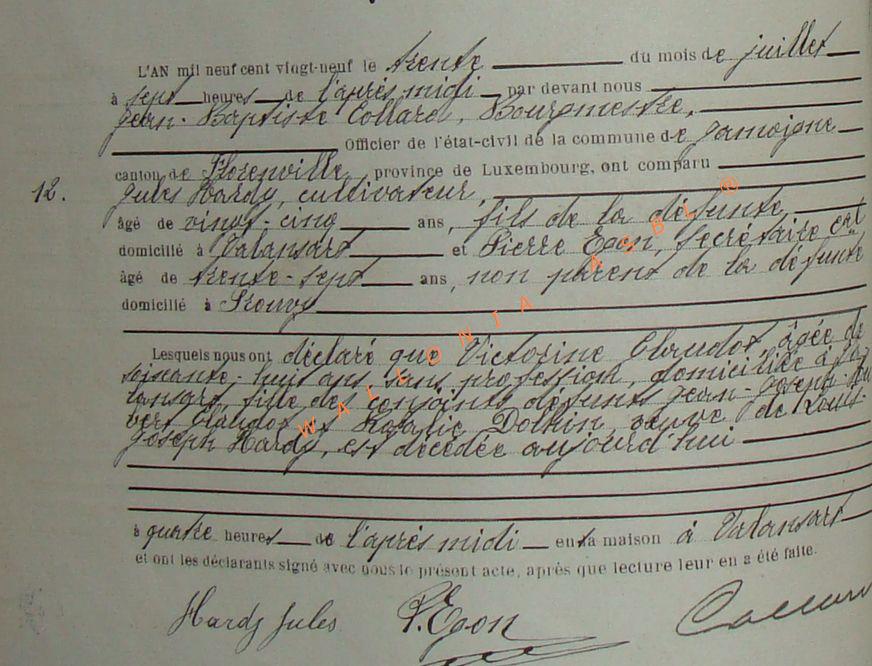 L'AN mil neuf cent vingt-neuf le trente du mois de juillet
à sept heures de l'après midi par devant nous
Jean-Baptiste Collard, Bourgmestre,
Officier de l'état-civil de la commune de Jamoigne
canton de Florenville, province de Luxembourg, ont comparu
12. Jules Hardy, cultivateur,
âgé de vingt-cinq ans, fils de la défunte,
domicilié à Valansart et Pierre Egon, Secrétaire cal
âgé de trente-sept ans, non parent de la défunte
domicilié à Prouvy
Lesquels nous ont déclaré que Victorine Claudot, âgée de
soixante-huit ans, sans profession, domiciliée à Va-
lansart, fille des conjoints défunts Jean-Joseph-Hu
bert Claudot et Rosalie Dothin, veuve de Louis-
Joseph Hardy, est décédée aujourd'hui
à quatre heures de l'après midi en sa maison à Valansart
et ont les déclarants signé avec nous le présent acte, après que lecture leur en a été faite.
Hardy Jules P. Egon Collard
WALLONIA ASBL ®